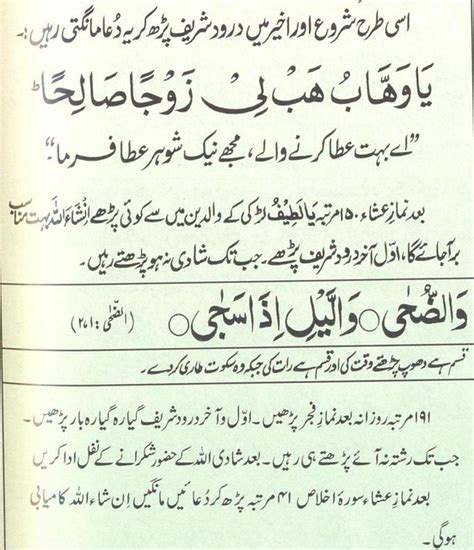 اسی طرح شروع اور اخیر میں درود شریف پڑھ کر یہ دعا مانگتی رہیں:۔
يَا وَهَّابُ هَبْ لِيْ زَوْجًا صَالِحًا ط
”اے بہت عطا کرنے والے، مجھے نیک شوہر عطا فرما۔“
بعد نمازِ عشاء ۱۵۰ مرتبہ یَا لَطِیْفُ لڑکی کے والدین میں سے کوئی پڑھے اِنْشَاءَ اللّٰہ بہت مناسب
بر آجائے گا، اوّل آخر درود شریف پڑھے۔ جب تک شادی نہ ہو پڑھتے رہیں۔
وَالضُّحٰى ○ وَالَّيْلِ اِذَا سَجٰى ○ (الضحٰی: ۲۷۱)
قسم ہے دھوپ پڑھتے وقت کی اور قسم ہے رات کی جبکہ وہ سکوت طاری کردے۔
۱۹۱ مرتبہ روزانہ بعد نمازِ فجر پڑھیں۔ اوّل و آخر درود شریف گیارہ گیارہ بار پڑھیں۔
جب تک رشتہ نہ آئے پڑھتے ہی رہیں۔ بعد شادی اللہ کے حضور شکرانے کے نفل ادا کریں
بعد نمازِ عشاء سورۂ اخلاص ۴۱ مرتبہ پڑھ کر دُعائیں مانگیں اِن شاء اللہ کامیابی
ہوگی۔